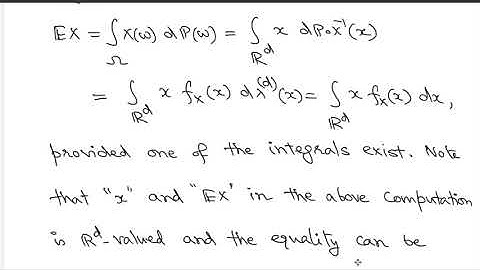 𝔼X = ∫_Ω X(ω) dℙ(ω) = ∫_{ℝ^d} x dℙ∘X^{-1}(x)
= ∫_{ℝ^d} x f_X(x) dλ^{(d)}(x) = ∫_{ℝ^d} x f_X(x) dx,
provided one of the integrals exist. Note
that "x" and "𝔼X" in the above computation
is ℝ^d-valued and the equality can be